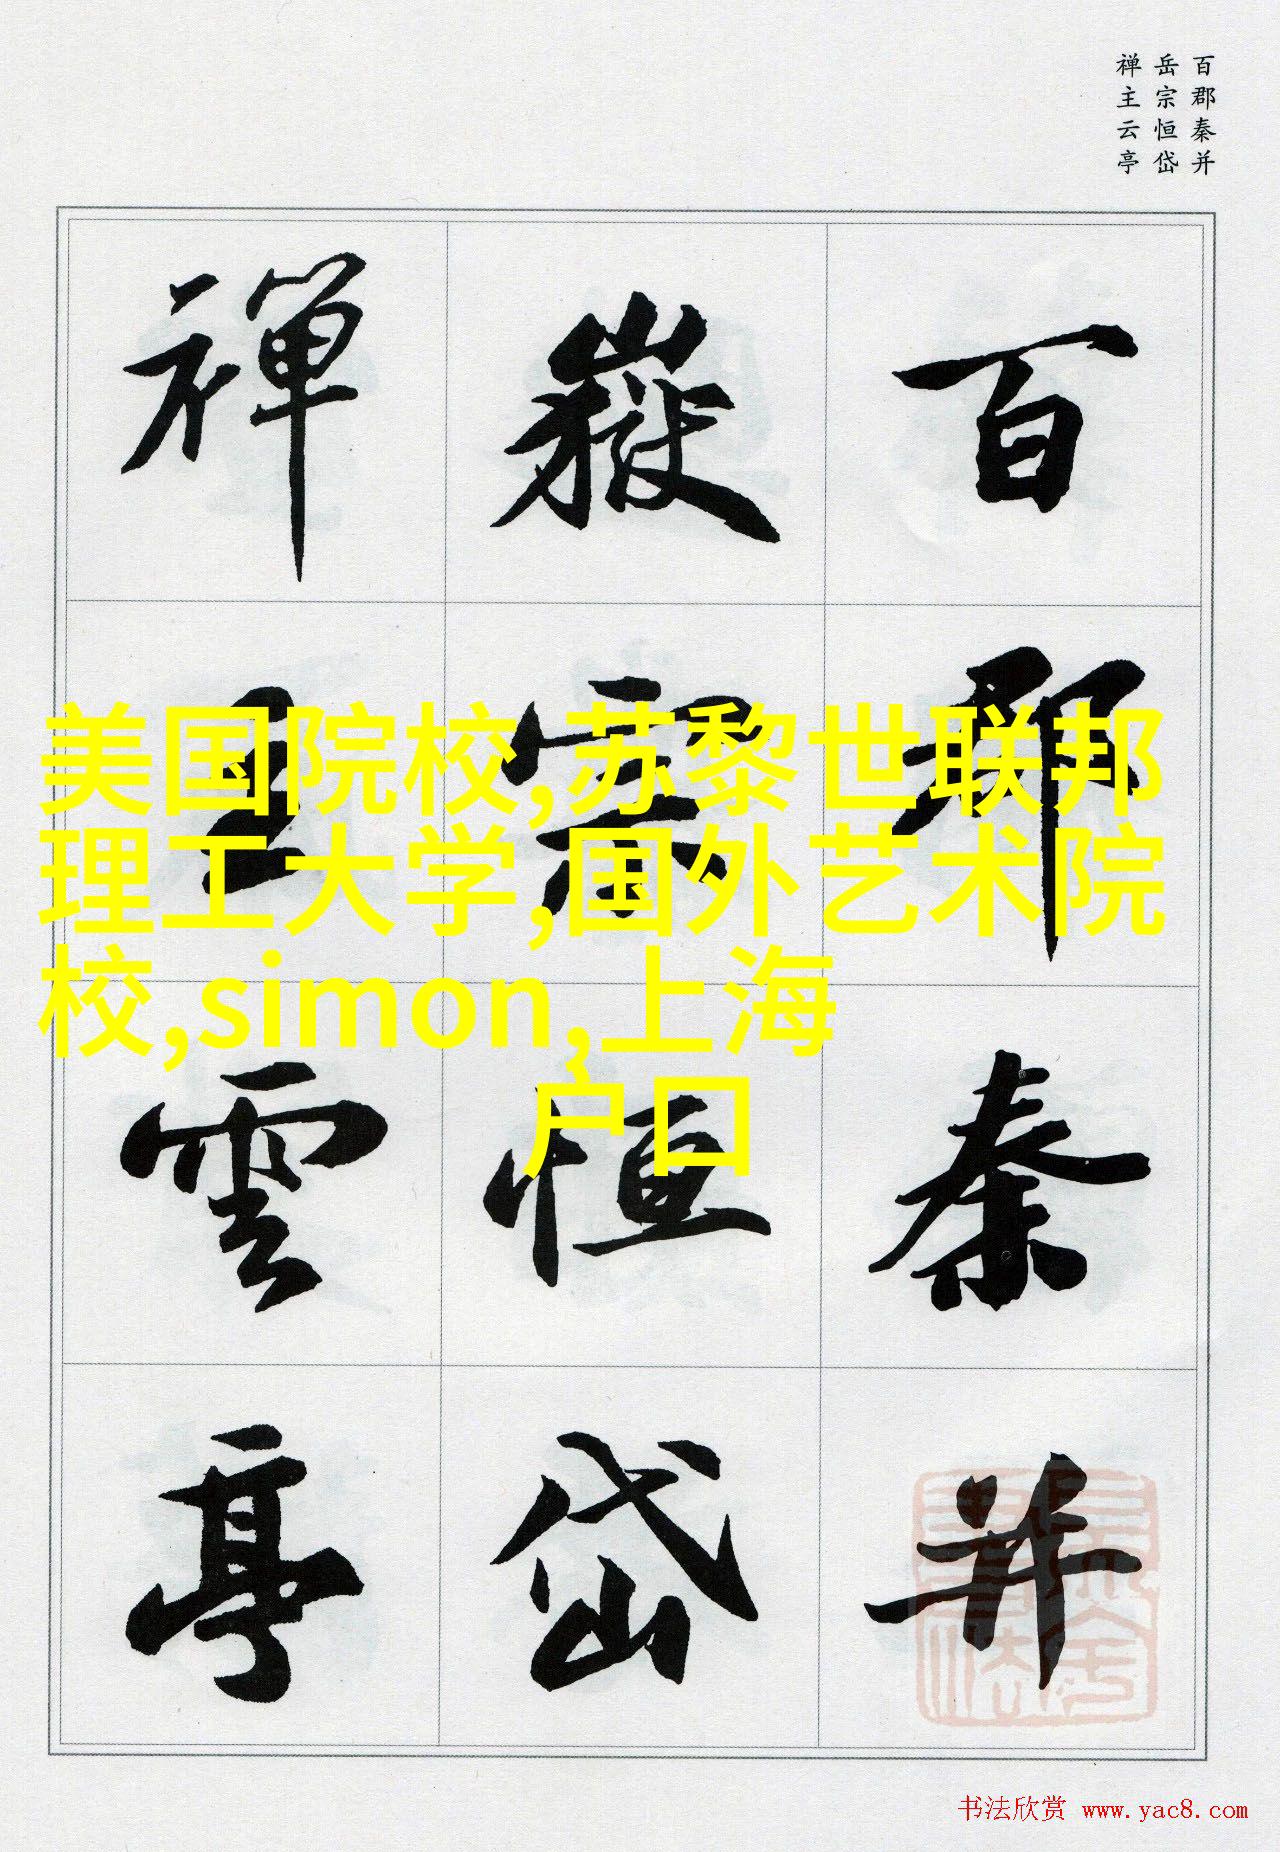 百郡秦并
岳宗恒岱
禅主云亭
百郡秦并
嶽宗恒岱
禅主雲亭
美国院校,苏黎世联邦
理工大学,国外艺术院
校,simon,上海
户口
书法欣赏 www.yac8.com